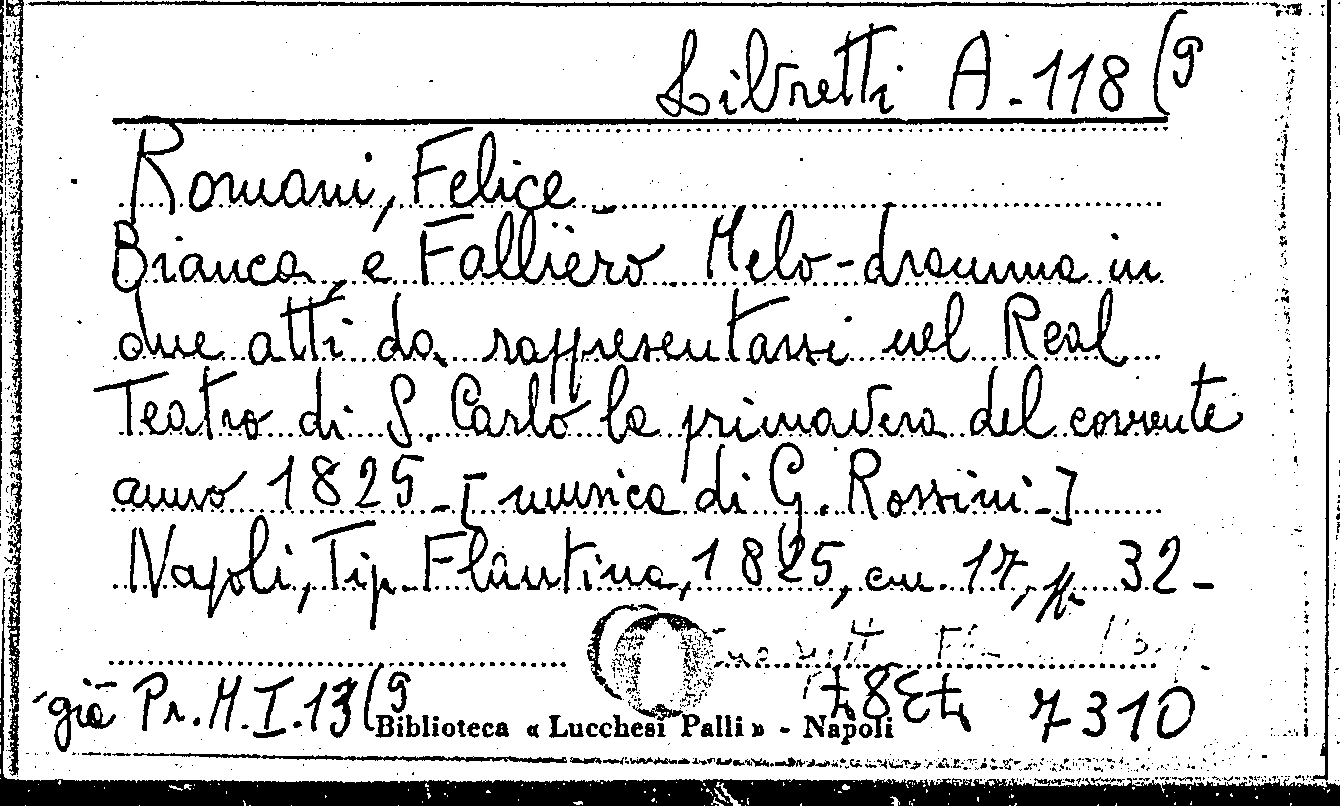 Libretti A. 118 (9
Romani, Felice -
Bianca, e Falliero. Melo-dramma in
due atti da rappresentarsi nel Real
Teatro di S. Carlo la primavera del corrente
anno 1825 - [musica di G. Rossini -]
Napoli, Tip. Flautina, 1825, cm. 17, pp. 32 -
già Pr. M. I. 13 (9
7310
Biblioteca « Lucchesi Palli » - Napoli